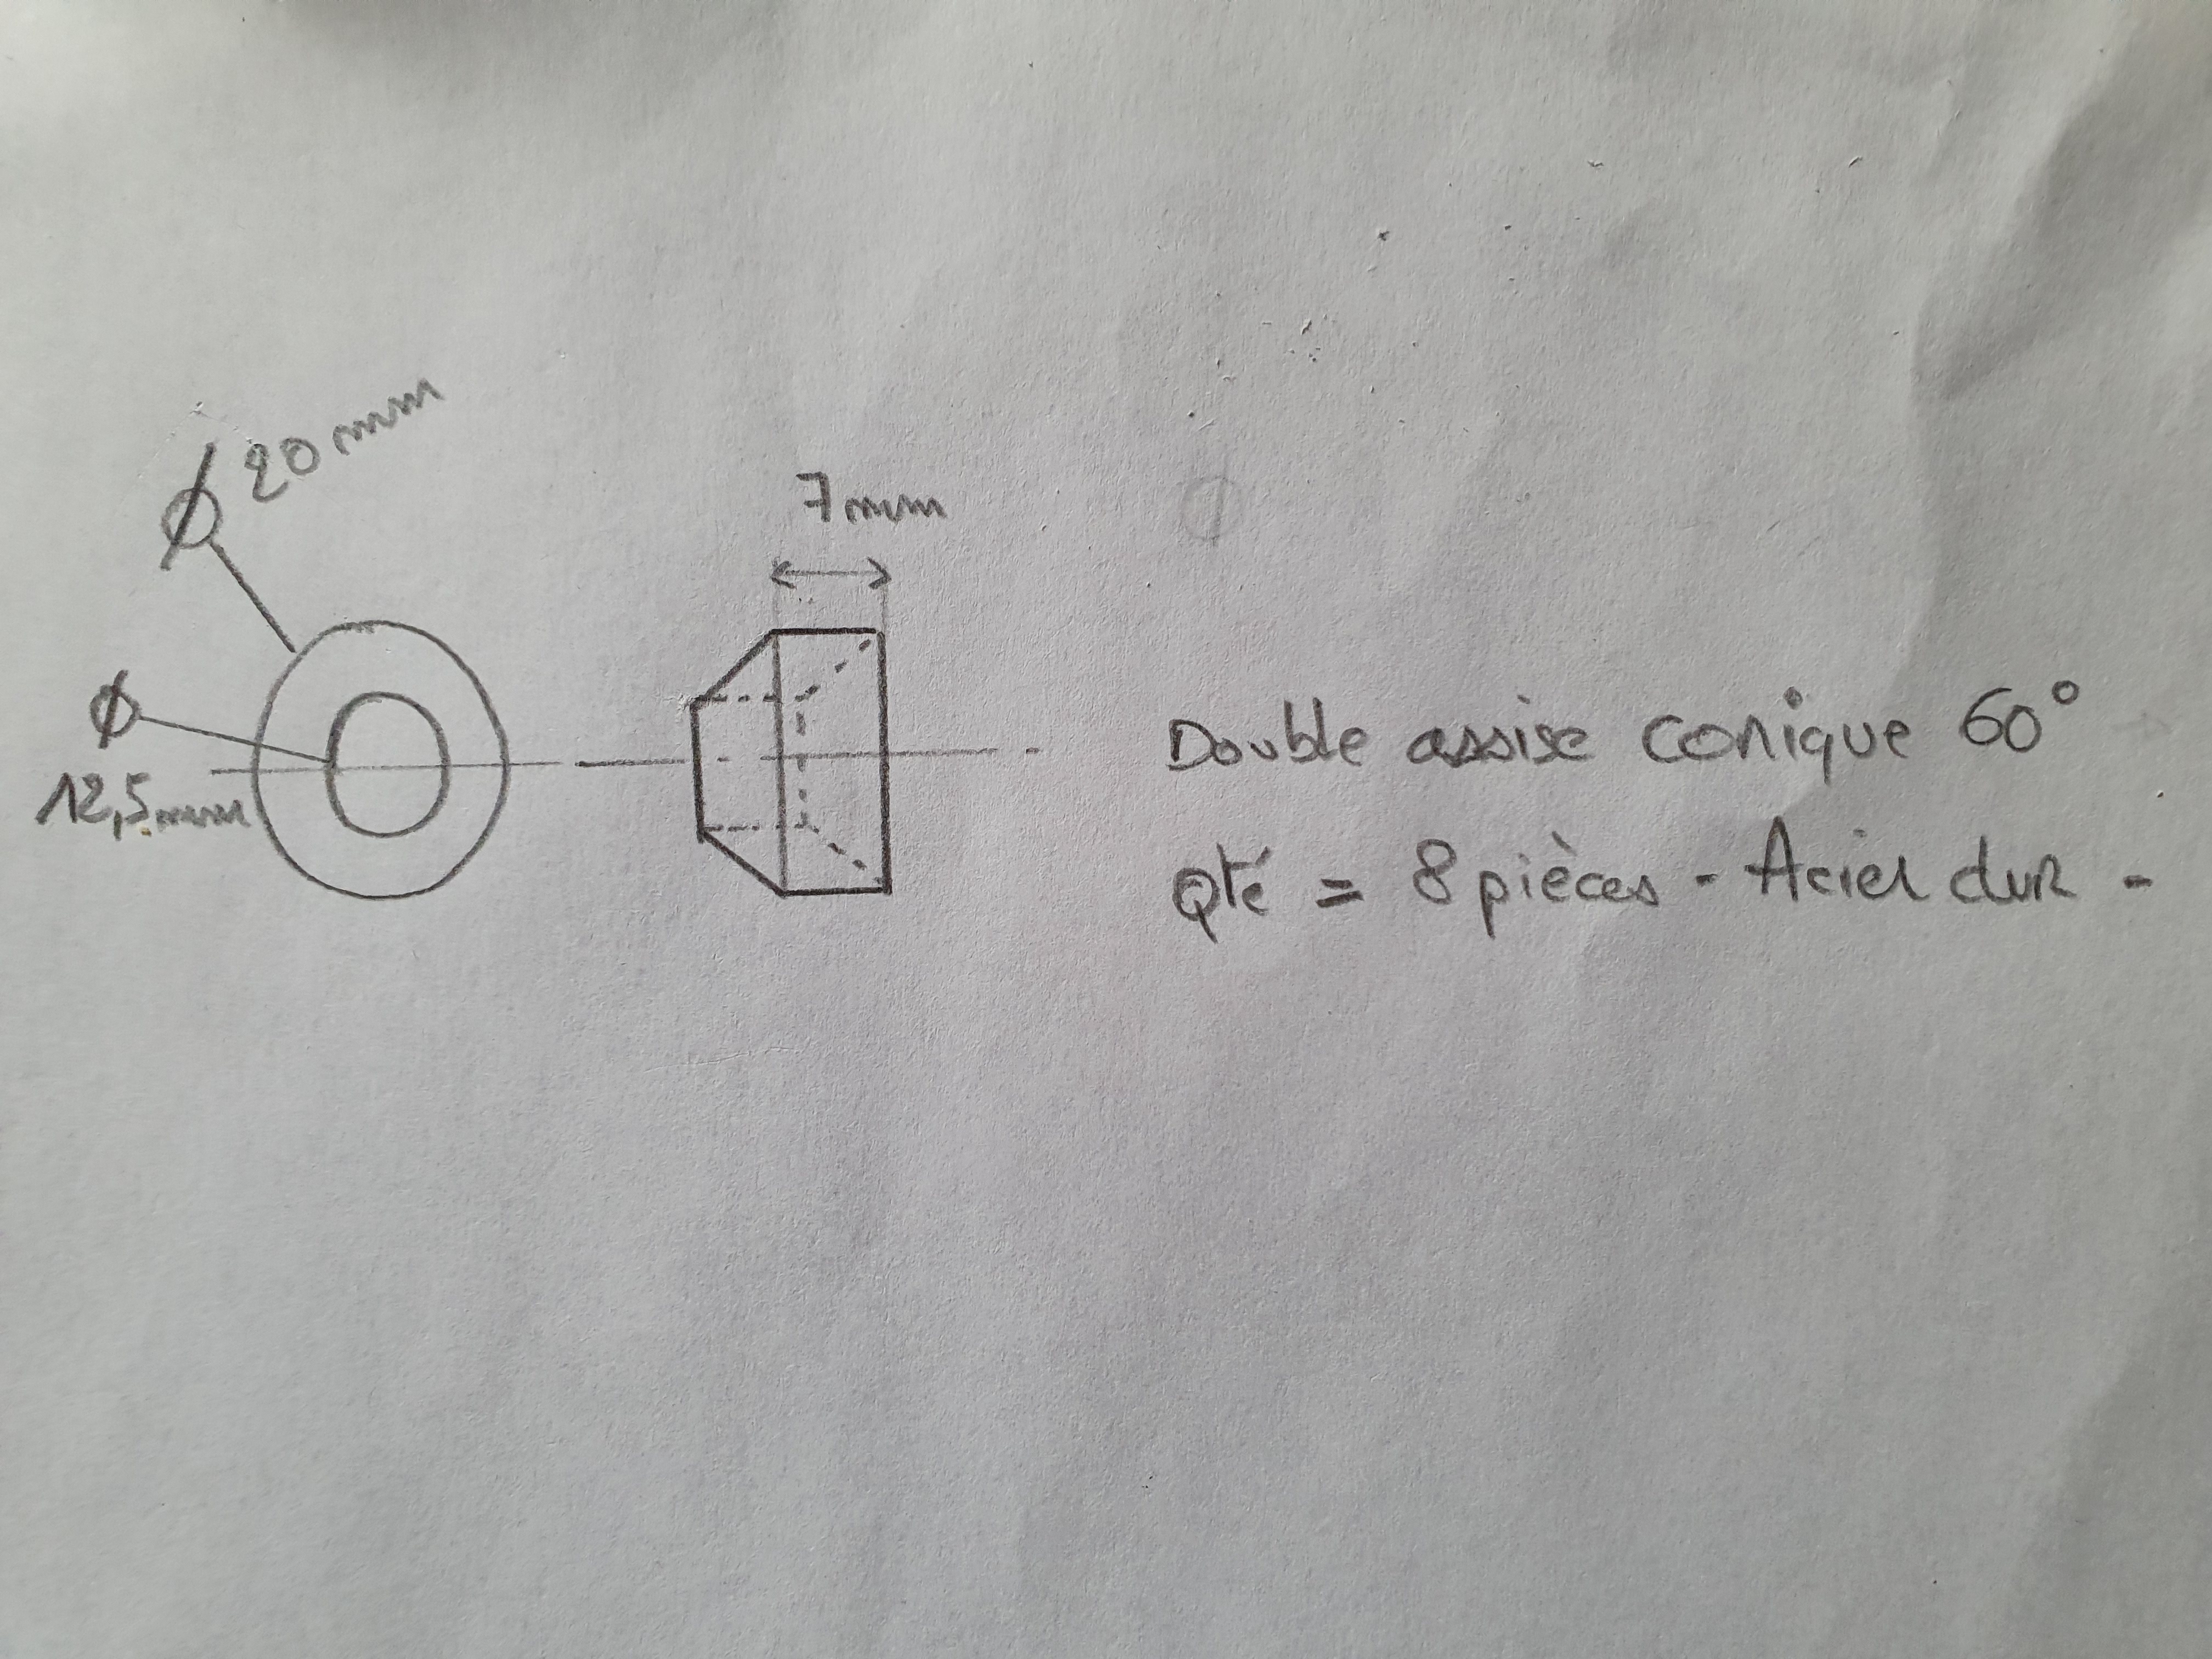 Ø 20 mm
7 mm
Ø
12,5 mm
Double assise conique 60°
Qté = 8 pièces - Acier dur -